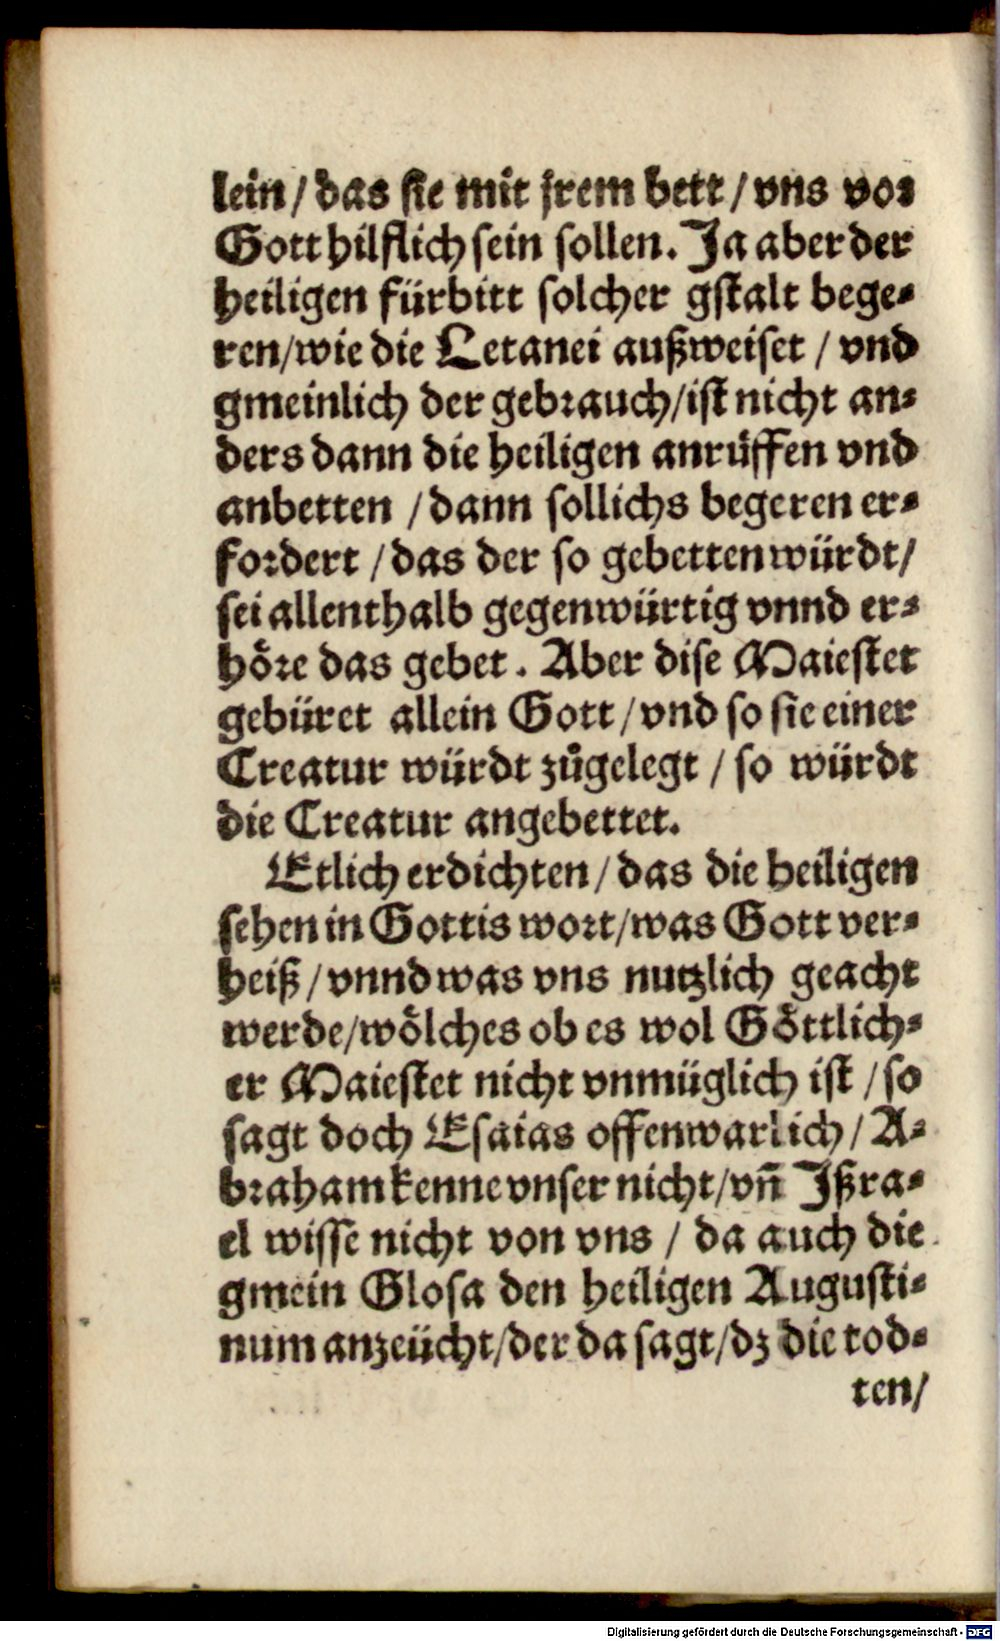 lein / das sie mit jrem bett / vns vor
Gott hilflich sein sollen. Ja aber der
heiligen fürbitt solcher gstalt bege⸗
ren/wie die Letanei außweiset / vnd
gmeinlich der gebrauch/ist nicht an⸗
ders dann die heiligen anrüffen vnd
anbetten / dann sollichs begeren er⸗
fordert / das der so gebetten würdt/
sei allenthalb gegenwürtig vnnd er⸗
höre das gebet. Aber dise Maiestet
gebüret allein Gott / vnd so sie einer
Creatur würdt zůgelegt / so würdt
die Creatur angebettet.
Etlich erdichten / das die heiligen
sehen in Gottis wort/was Gott ver⸗
heiß / vnnd was vns nutzlich geacht
werde/wölches ob es wol Göttlich⸗
er Maiestet nicht vnmüglich ist / so
sagt doch Esaias offenwarlich / A⸗
braham kenne vnser nicht/vñ Jßra⸗
el wisse nicht von vns / da auch die
gmein Glosa den heiligen Augusti⸗
num anzeücht/der da sagt/dz die tod⸗
ten/
Digitalisierung gefördert durch die Deutsche Forschungsgemeinschaft - DFG